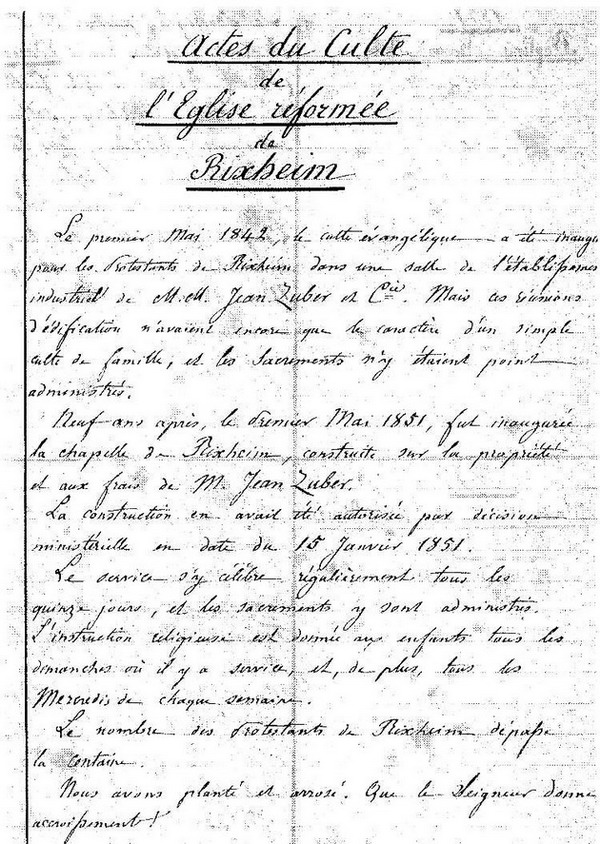 Actes du Culte
de
l'Eglise réformée
de
Rixheim
Le premier Mai 1842, le culte évangélique a été inaugu
pour les Protestants de Rixheim dans une salle de l'établissemen
industriel de M.M. Jean Zuber et Cie. Mais ces réunions
d'édification n'avaient encore que le caractère d'un simple
culte de famille, et les Sacrements n'y étaient point
administrés.
Neuf ans après, le premier Mai 1851, fut inaugurée
la chapelle de Rixheim, construite sur la propriété
et aux frais de M. Jean Zuber.
La construction en avait été autorisée par décision
ministérielle en date du 15 Janvier 1851.
Le service s'y célèbre régulièrement tous les
quinze jours, et les sacrements y sont administrés.
L'instruction religieuse est donnée aux enfants tous les
dimanches où il y a service, et, de plus, tous les
Mercredis de chaque semaine.
Le nombre des Protestants de Rixheim dépasse
la centaine.
Nous avons planté et arrosé. Que le Seigneur donne
accroissement!